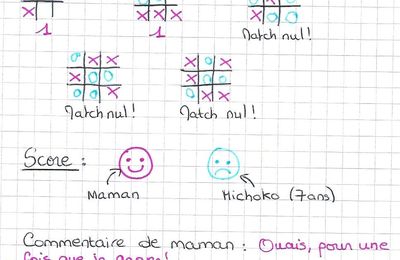 1 1 Match nul!
Match nul! Match nul!
Score :
Maman Michoko (7 ans)
Commentaire de maman : Ouais, pour une
fois que je gagne!